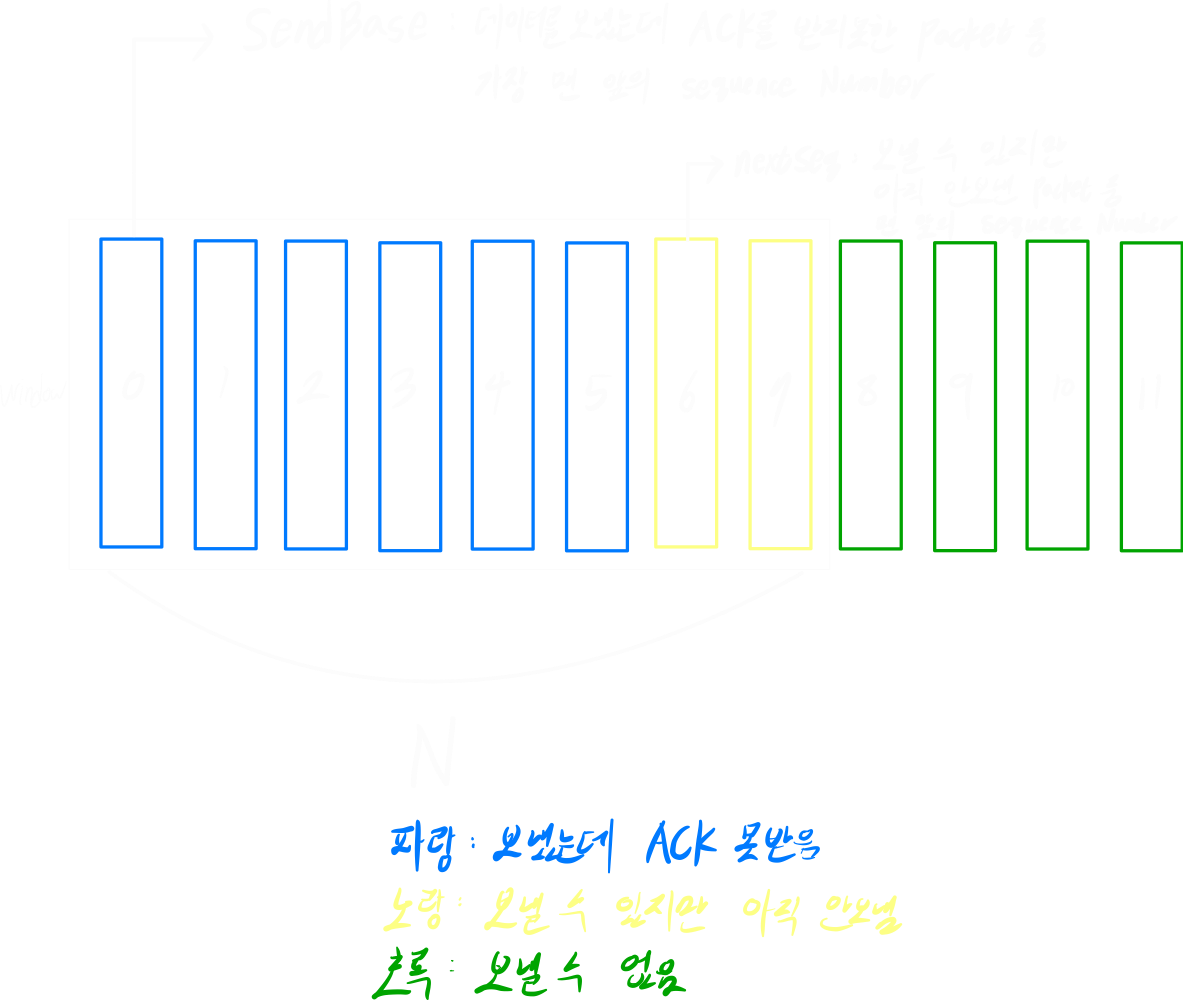 SendBase : 데이터를 보냈는데 ACK를 받지못한 Packet 중
가장 맨 앞의 sequence Number
nextSeq : 보낼 수 있지만
아직 안보낸 Packet 중
맨 앞의 sequence Number
window 0 1 2 3 4 5 6 7 8 9 10 11
N
파랑 : 보냈는데 ACK 못받음
노랑 : 보낼 수 있지만 아직 안보냄
초록 : 보낼 수 없음